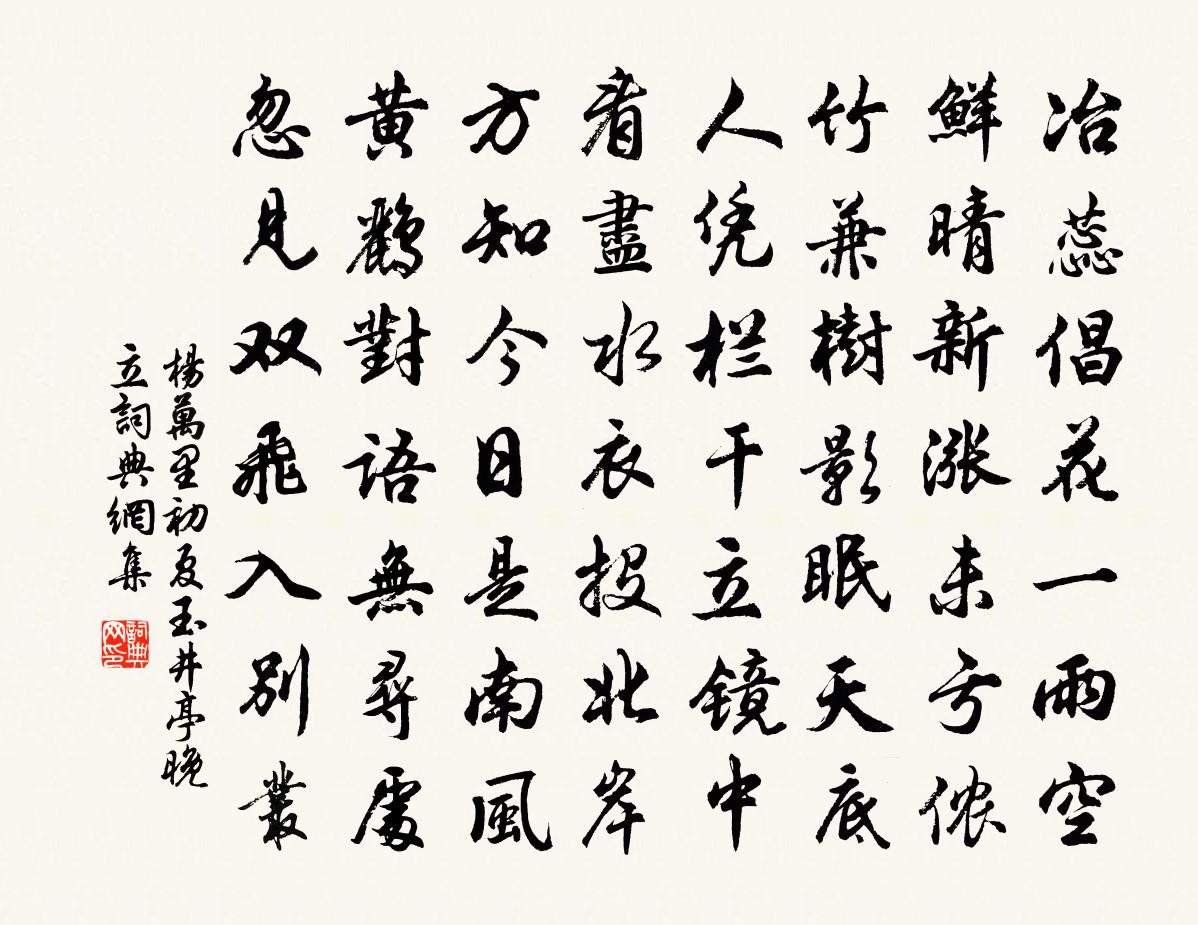 冶蕊倡花一雨空
鮮晴新漲未亏侬
竹兼樹影眠天底
人凭栏干立镜中
看盡水衣投北岸
方知今日是南風
黄鸝對語無尋處
忽見双飛入別叢
楊萬里初夏玉井亭晚
立詞典網集
詞典
网印